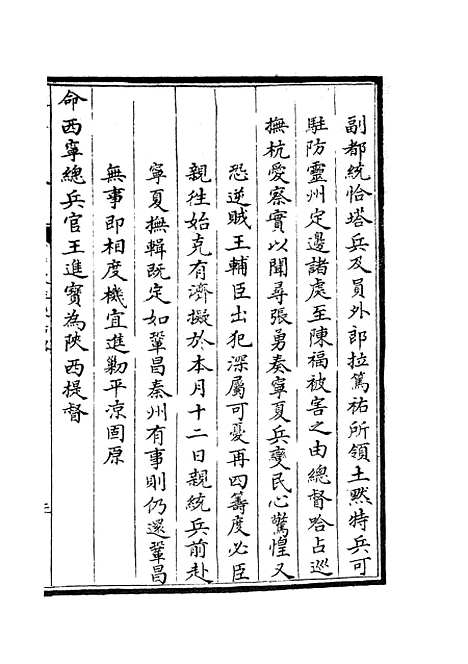 副都統恰塔兵及員外郎拉篤祐所領土黙特兵可
駐防靈州定邊諸處至陳福被害之由總督哈占巡
撫杭愛察實以聞尋張勇奏寧夏兵變民心驚惶又
恐逆賊王輔臣出犯深屬可憂再四籌度必臣
親往始克有濟擬於本月十二日親統兵前赴
寧夏撫輯既定如鞏昌秦州有事則仍還鞏昌
無事即相度機宜進勦平涼固原
命西寧總兵官王進寳為陜西提督
三